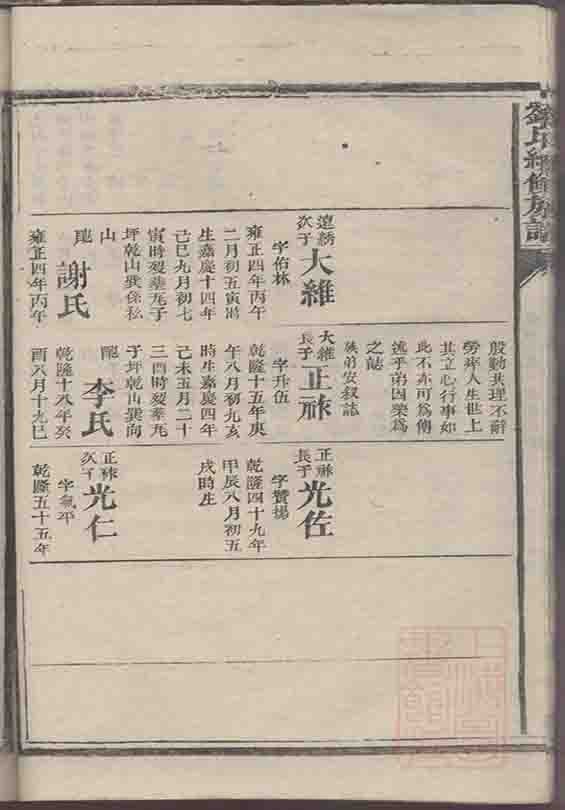 劉氏續修族譜
遠綉
次子
大維
字佰林
雍正四年丙午
二月初五寅時
生嘉慶十四年
己巳九月初七
寅時歿葬九子
坪乾山巽係私
山
配謝氏
雍正四年丙午
殷勤其理不辭
勞瘁人生世上
其立心行事如
此不亦可為傳
述乎弟因樂為
之誌
族弟安叙誌
大維
長子
正祿
字升伍
乾隆十五年庚
午八月初九亥
時生嘉慶四年
己未五月二十
三酉時歿葬九
子坪乾山巽向
配李氏
乾隆十八年癸
酉八月十九巳
正祿
長子
光佐
字贊揚
乾隆四十九年
甲辰八月初五
戌時生
正祿
次子
光仁
字氣平
乾隆五十五年